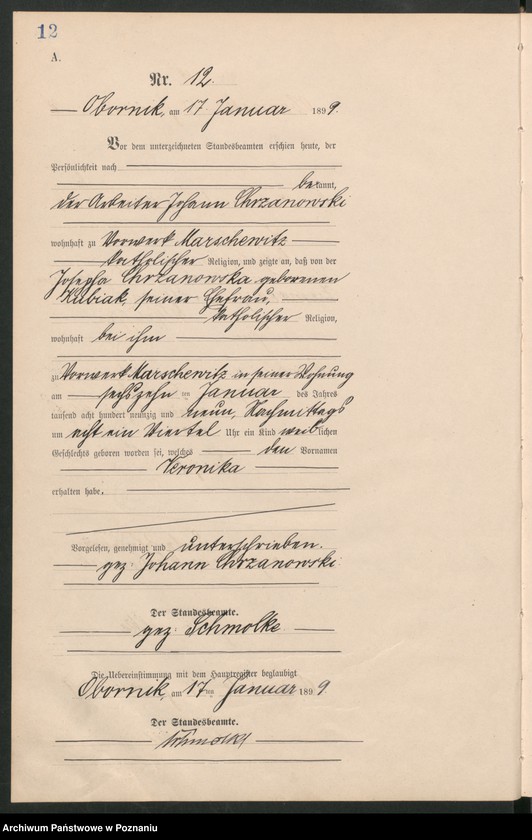 12
A.
Nr. 12.
Obornik, am 17. Januar 1899.
Vor dem unterzeichneten Standesbeamten erschien heute, der
Persönlichkeit nach
bekannt,
der Arbeiter Johann Chrzanowski
wohnhaft zu Vorwerk Marschewitz
katholischer Religion, und zeigte an, daß von der
Josepha Chrzanowska geborenen
Kubiak, seiner Ehefrau,
katholischer Religion,
wohnhaft bei ihm
zu Vorwerk Marschewitz in seiner Wohnung
am sechszehn ten Januar des Jahres
tausend acht hundert neunzig und neun, Nachmittags
um acht ein Viertel Uhr ein Kind weiblichen
Geschlechts geboren worden sei, welches den Vornamen
Veronika
erhalten habe.
Vorgelesen, genehmigt und unterschrieben.
gez. Johann Chrzanowski
Der Standesbeamte.
gez. Schmolke
Die Uebereinstimmung mit dem Hauptregister beglaubigt
Obornik, am 17ten Januar 1899
Der Standesbeamte.
Schmolke
Archiwum Państwowe w Poznaniu